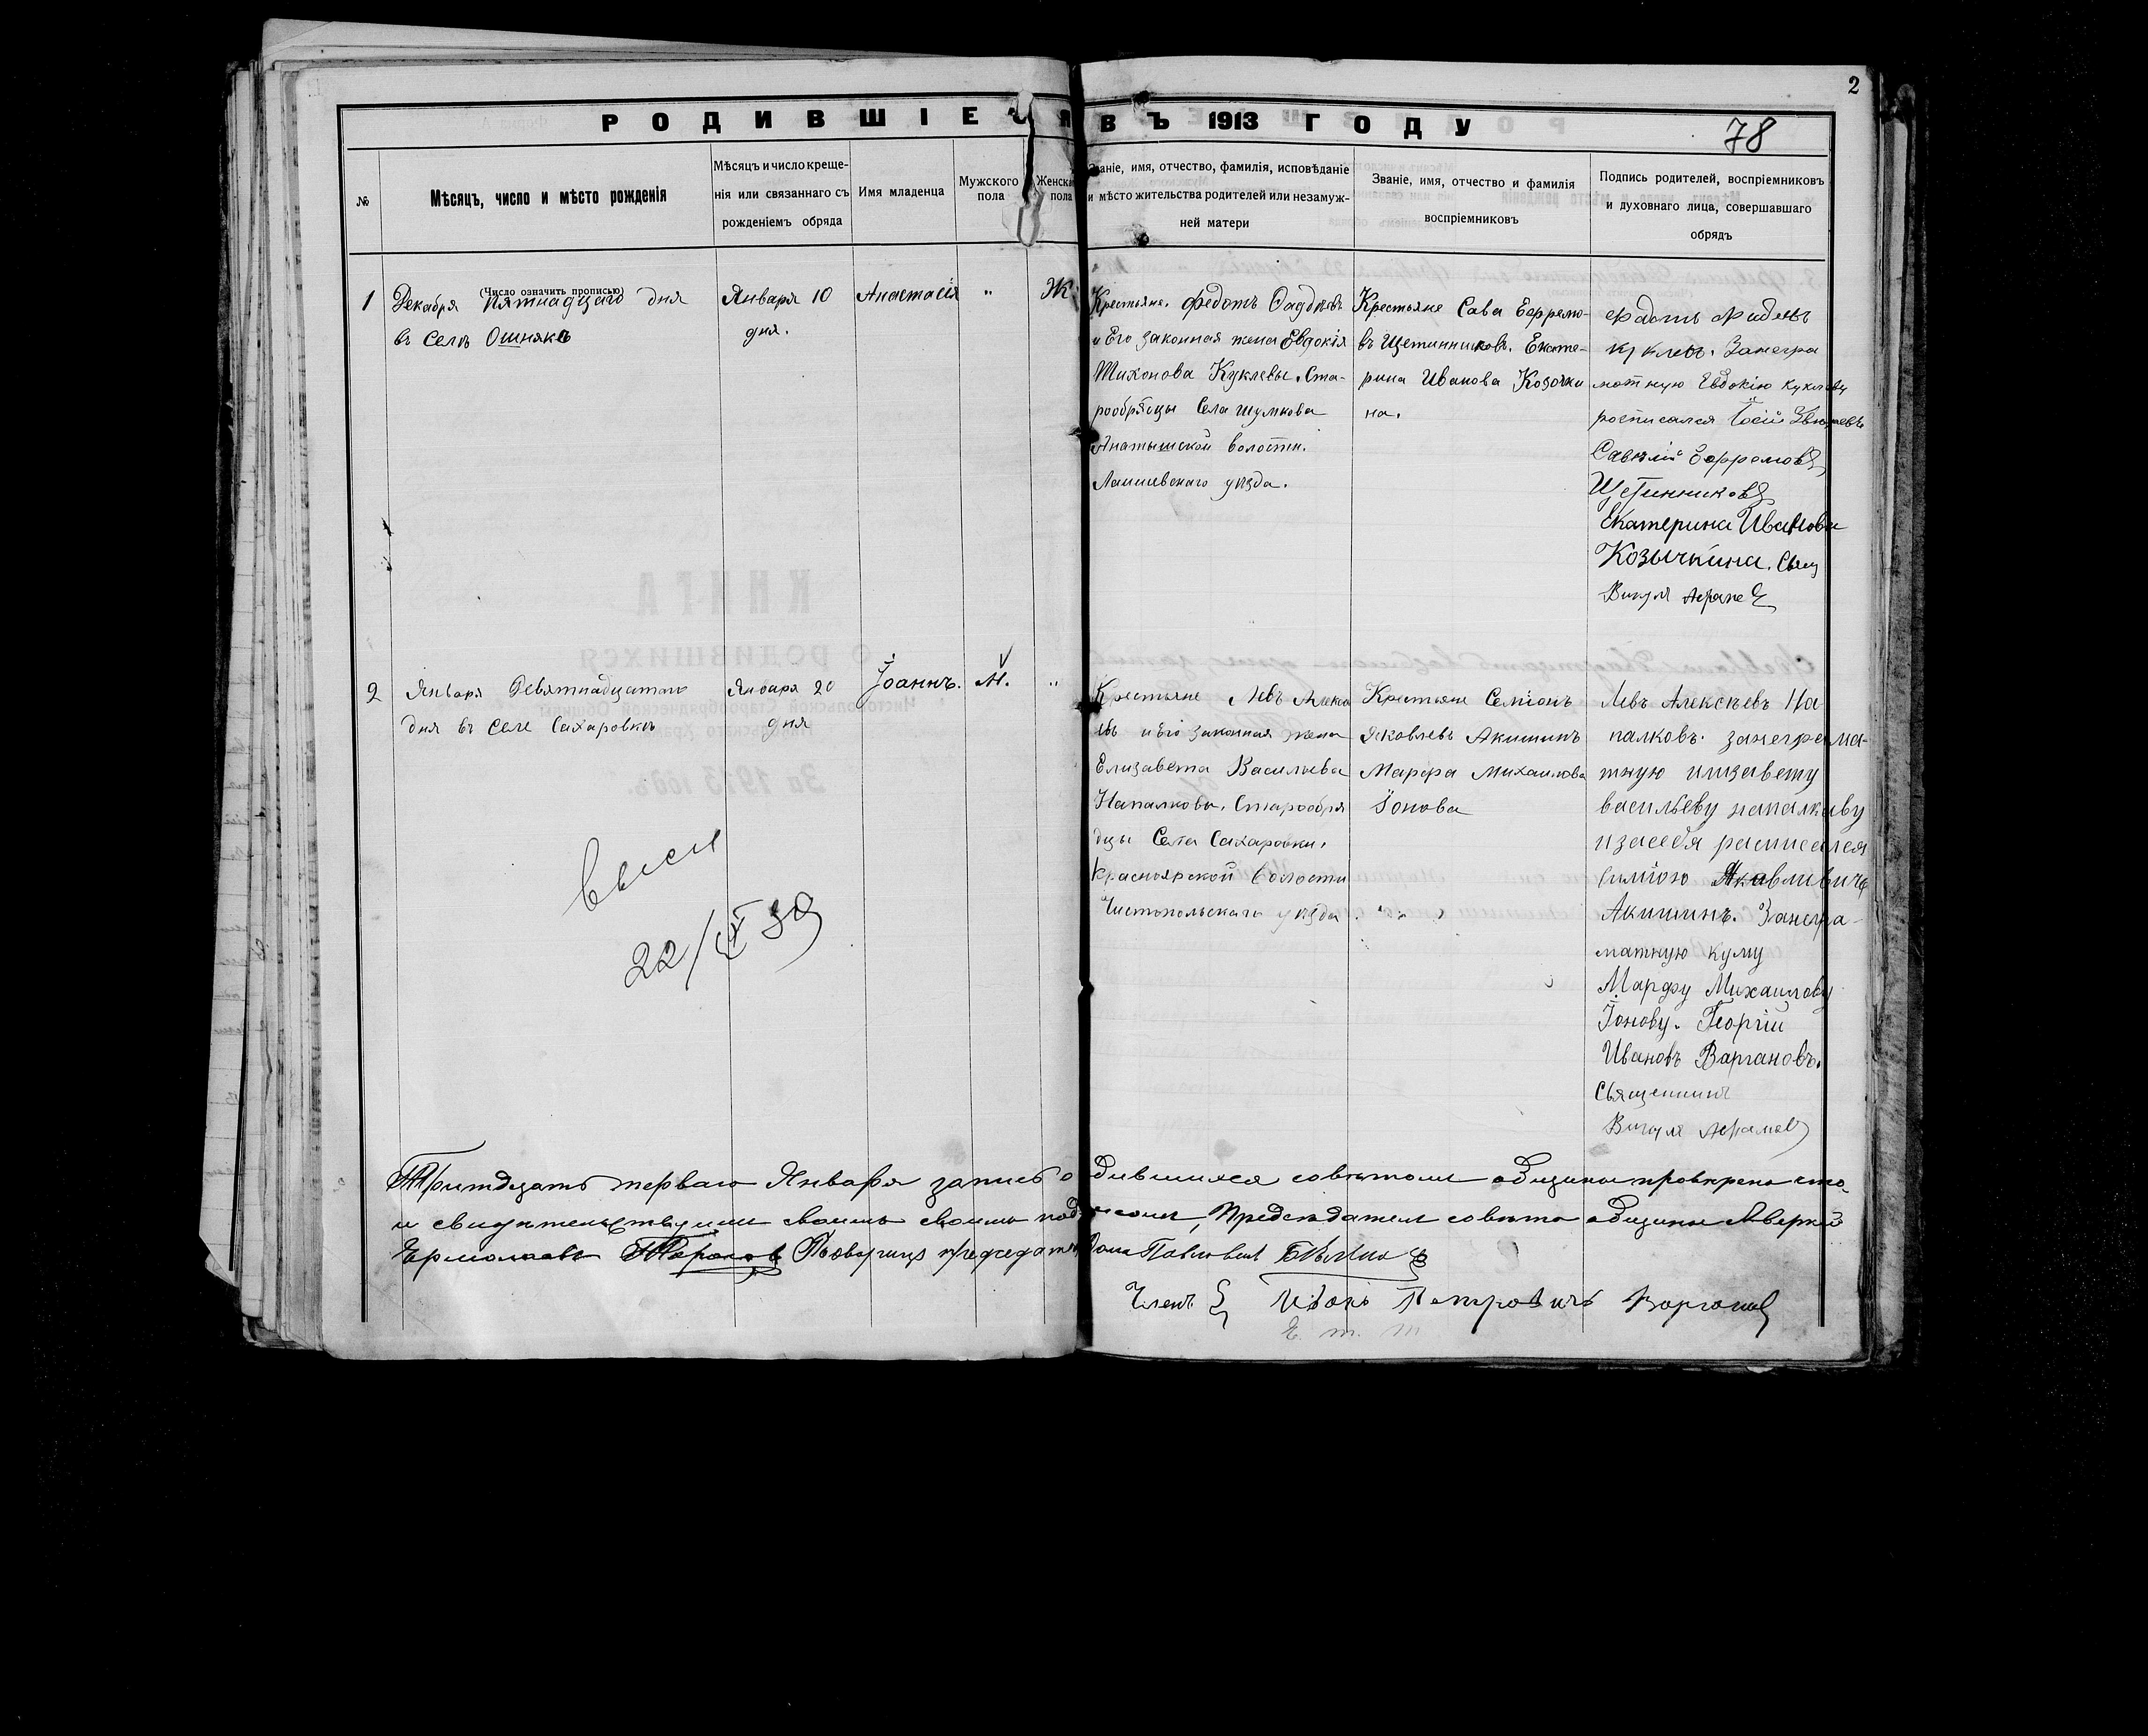 2
РОДИВШІЕСЯ ВЪ 1913 ГОДУ
78
№
Мѣсяцъ, число и мѣсто рожденія
Мѣсяцъ и число креще-
нія или связаннаго съ
рожденіемъ обряда
Имя младенца
Мужского
пола
Женска
пола
Званіе, имя, отчество, фамилія, исповѣданіе
и мѣсто жительства родителей или незамуж-
ней матери
Званіе, имя, отчество и фамилія
воспріемниковъ
Подпись родителей, воспріемниковъ
и духовнаго лица, совершавшаго
обрядъ
(Число означить прописью)
1
Декабря пятнадцаго дня
въ Селѣ Ошнякѣ
Января 10
дня.
Анастасія
"
Ж
Крестьяне. Федотъ
и Его законная жена Евдокія
Тихонова Куклевы. Ста-
рообрядцы Села Шумкова
Анатышской волости.
Лаишевскаго уѣзда.
Крестьяне Сава Ефремо-
въ Щетинниковъ. Екате-
рина Иванова Козочки
на.
Куклевъ. Занегра
мотную Евдокію Куклеву
росписался
Савелій Ефремовъ
Щетинниковъ
Екатерина Иванова
Козычкина. Свящ
Викулъ
2
Января Девятнадцатаго
дня въ Селе Сахаровкѣ
Января 20
дня
Іоаннъ.
М.
"
Крестьяне Левъ Алексѣ
евъ и Его законная жена
Елизавета Васильева
Напалковы. Старообря
дцы Села Сахаровки.
Красноярской Волости
Чистопольскаго уѣзда
Крестьяне Семіонъ
Яковлевъ Акишинъ
Марфа Михаилова
Іонова
Левъ Алексѣевъ На
палковъ. занеграма-
тную илизавету
васильеву напалкаву
изасебя расписался
Акавливичъ
Акишинъ. Занегра-
матную куму
Марфу Михаилову
Іонову. Георгій
Ивановъ Варгановъ.
Священникъ
Викула
22/XI 39
Тритдцать перваго Января запись о дившихся совѣтомъ общины провѣрена
и свидѣтельствуимъ своимъ своимъ подписомъ, Предсѣдатель совѣта общины Аверкій
Ермолаевъ Товарищъ председателя Павловъ
Членъ Иванъ Петровичъ Варгановъ